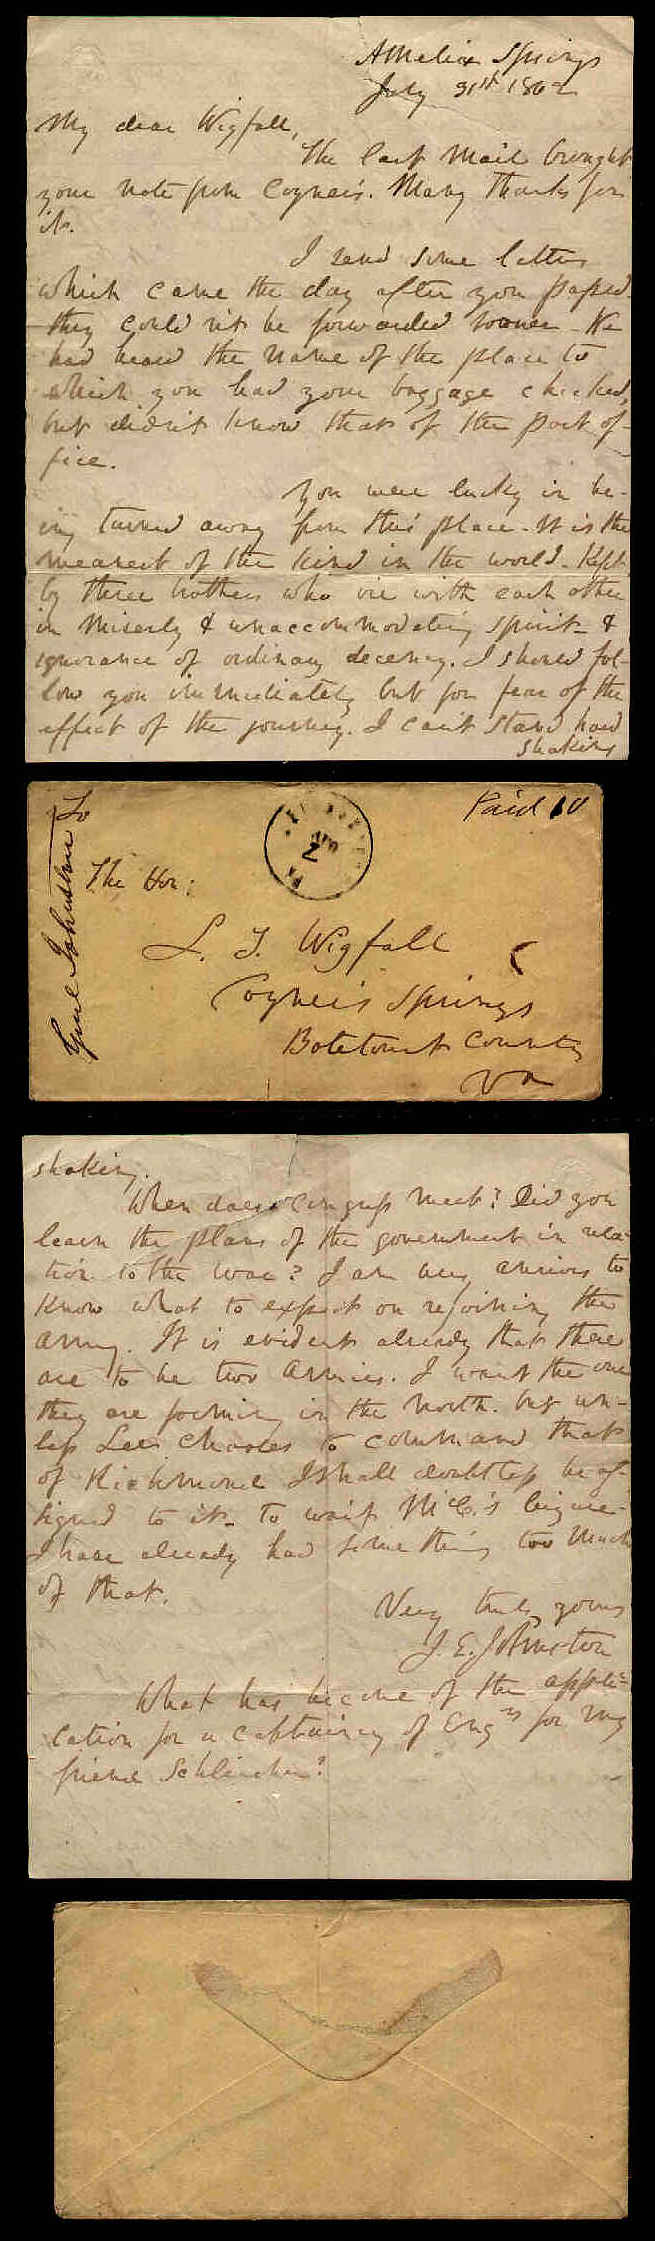 Amelia Springs
July 31st 1862
My dear Wigfall,
The last mail brought
your note from Coyner's. Many thanks for
it.
I send some letters
which came the day after you passed.
they could not be forwarded sooner - We
had heard the name of the place to
which you had your baggage checked,
but didn't know that of the post of-
fice.
You were lucky in be-
ing turned away from this place - It is the
meanest of the kind in the world - Kept
by three brothers who vie with each other
in miserly & unaccommodating spirit - &
ignorance of ordinary decency. I should fol-
low you immediately but for fear of the
effect of the journey. I can't stand hard
shaking
To
Paid 10
The Hon:
Genl Johnston
L. T. Wigfall
Coyner's Springs
Botetourt County
Va
shaking.
When does congress meet? Did you
learn the plans of the government in rela-
tion to the war? I am very anxious to
know what to expect on rejoining the
army. It is evident already that there
are to be two armies. I want the one
they are forming in the North. but un-
less Lee chooses to command that
of Richmond I shall doubtless be as-
signed to it - to wait McC.'s leizure -
I have already had something too much
of that.
Very truly yours
J. E. Johnston
What has become of the appli-
cation for a captaincy of Engrs for my
friend